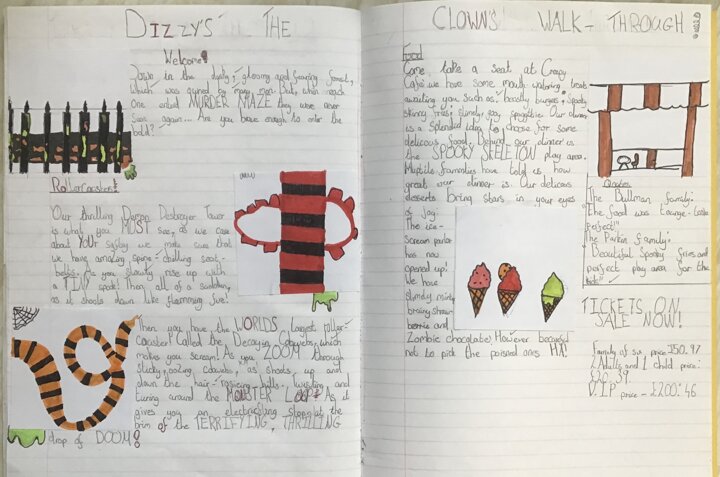 DIZZY'S THE CLOWN'S WALK-THROUGH
Welcome!
Down in the dusty, glowing and
forest,
which was owned by many men. But, when each
one entered MURDER MAZE they were never
seen again... Are you brave enough to enter the
Rollercoasters!
Our thrilling Demon Destroyer Tower
is what you MUST see, as we care
about YOUR safety we made sure that
we have amazing spine-chilling seat-
belts. As you slowly rise up with
a TINY speed! Then, all of a sudden,
as it shoots down like flamming fire!
Then you have the WORLDS largest roller-
coaster! Called the Decaying
, which
makes you scream! As you ZOOM through
sticky, oozing
, as shoots up and
down the hair-raising hills, twisting and
turing around the MONSTER LOOP! As it
gives you an
at the
brim of the TERRIFYING, THRILLING
drop of DOOM!
Food
Come, take a seat at Creepy
Café we have some mouth-watering treats
awaiting you such as: beastly burgers, spooky
skinny fries, slimely,
spagettie. Our dinner
is a splended idea to choose for some
delicous food. Behind our dinner is
the SPOOKY SKELETON play area.
Multiple
have told us how
great our dinner is. Our delicous
desserts bring stars in your eyes
of joy.
The ice-
scream parlor
has now
opened up!
We have
slimdy minty,
brainy straw-
berrie and
Zombie chocolate. However becareful
not to pick the poisned ones HA!
Quotes
The Bullman family:
"The food was
perfect!"
The Parker family:
"Beautiful, spooky fries and
perfect play area for the
kids!"
TICKETS ON
SALE NOW!
Family of six price: £50.97
2 Adults and 1 child price:
£20.39
V.I.P price - £200.46